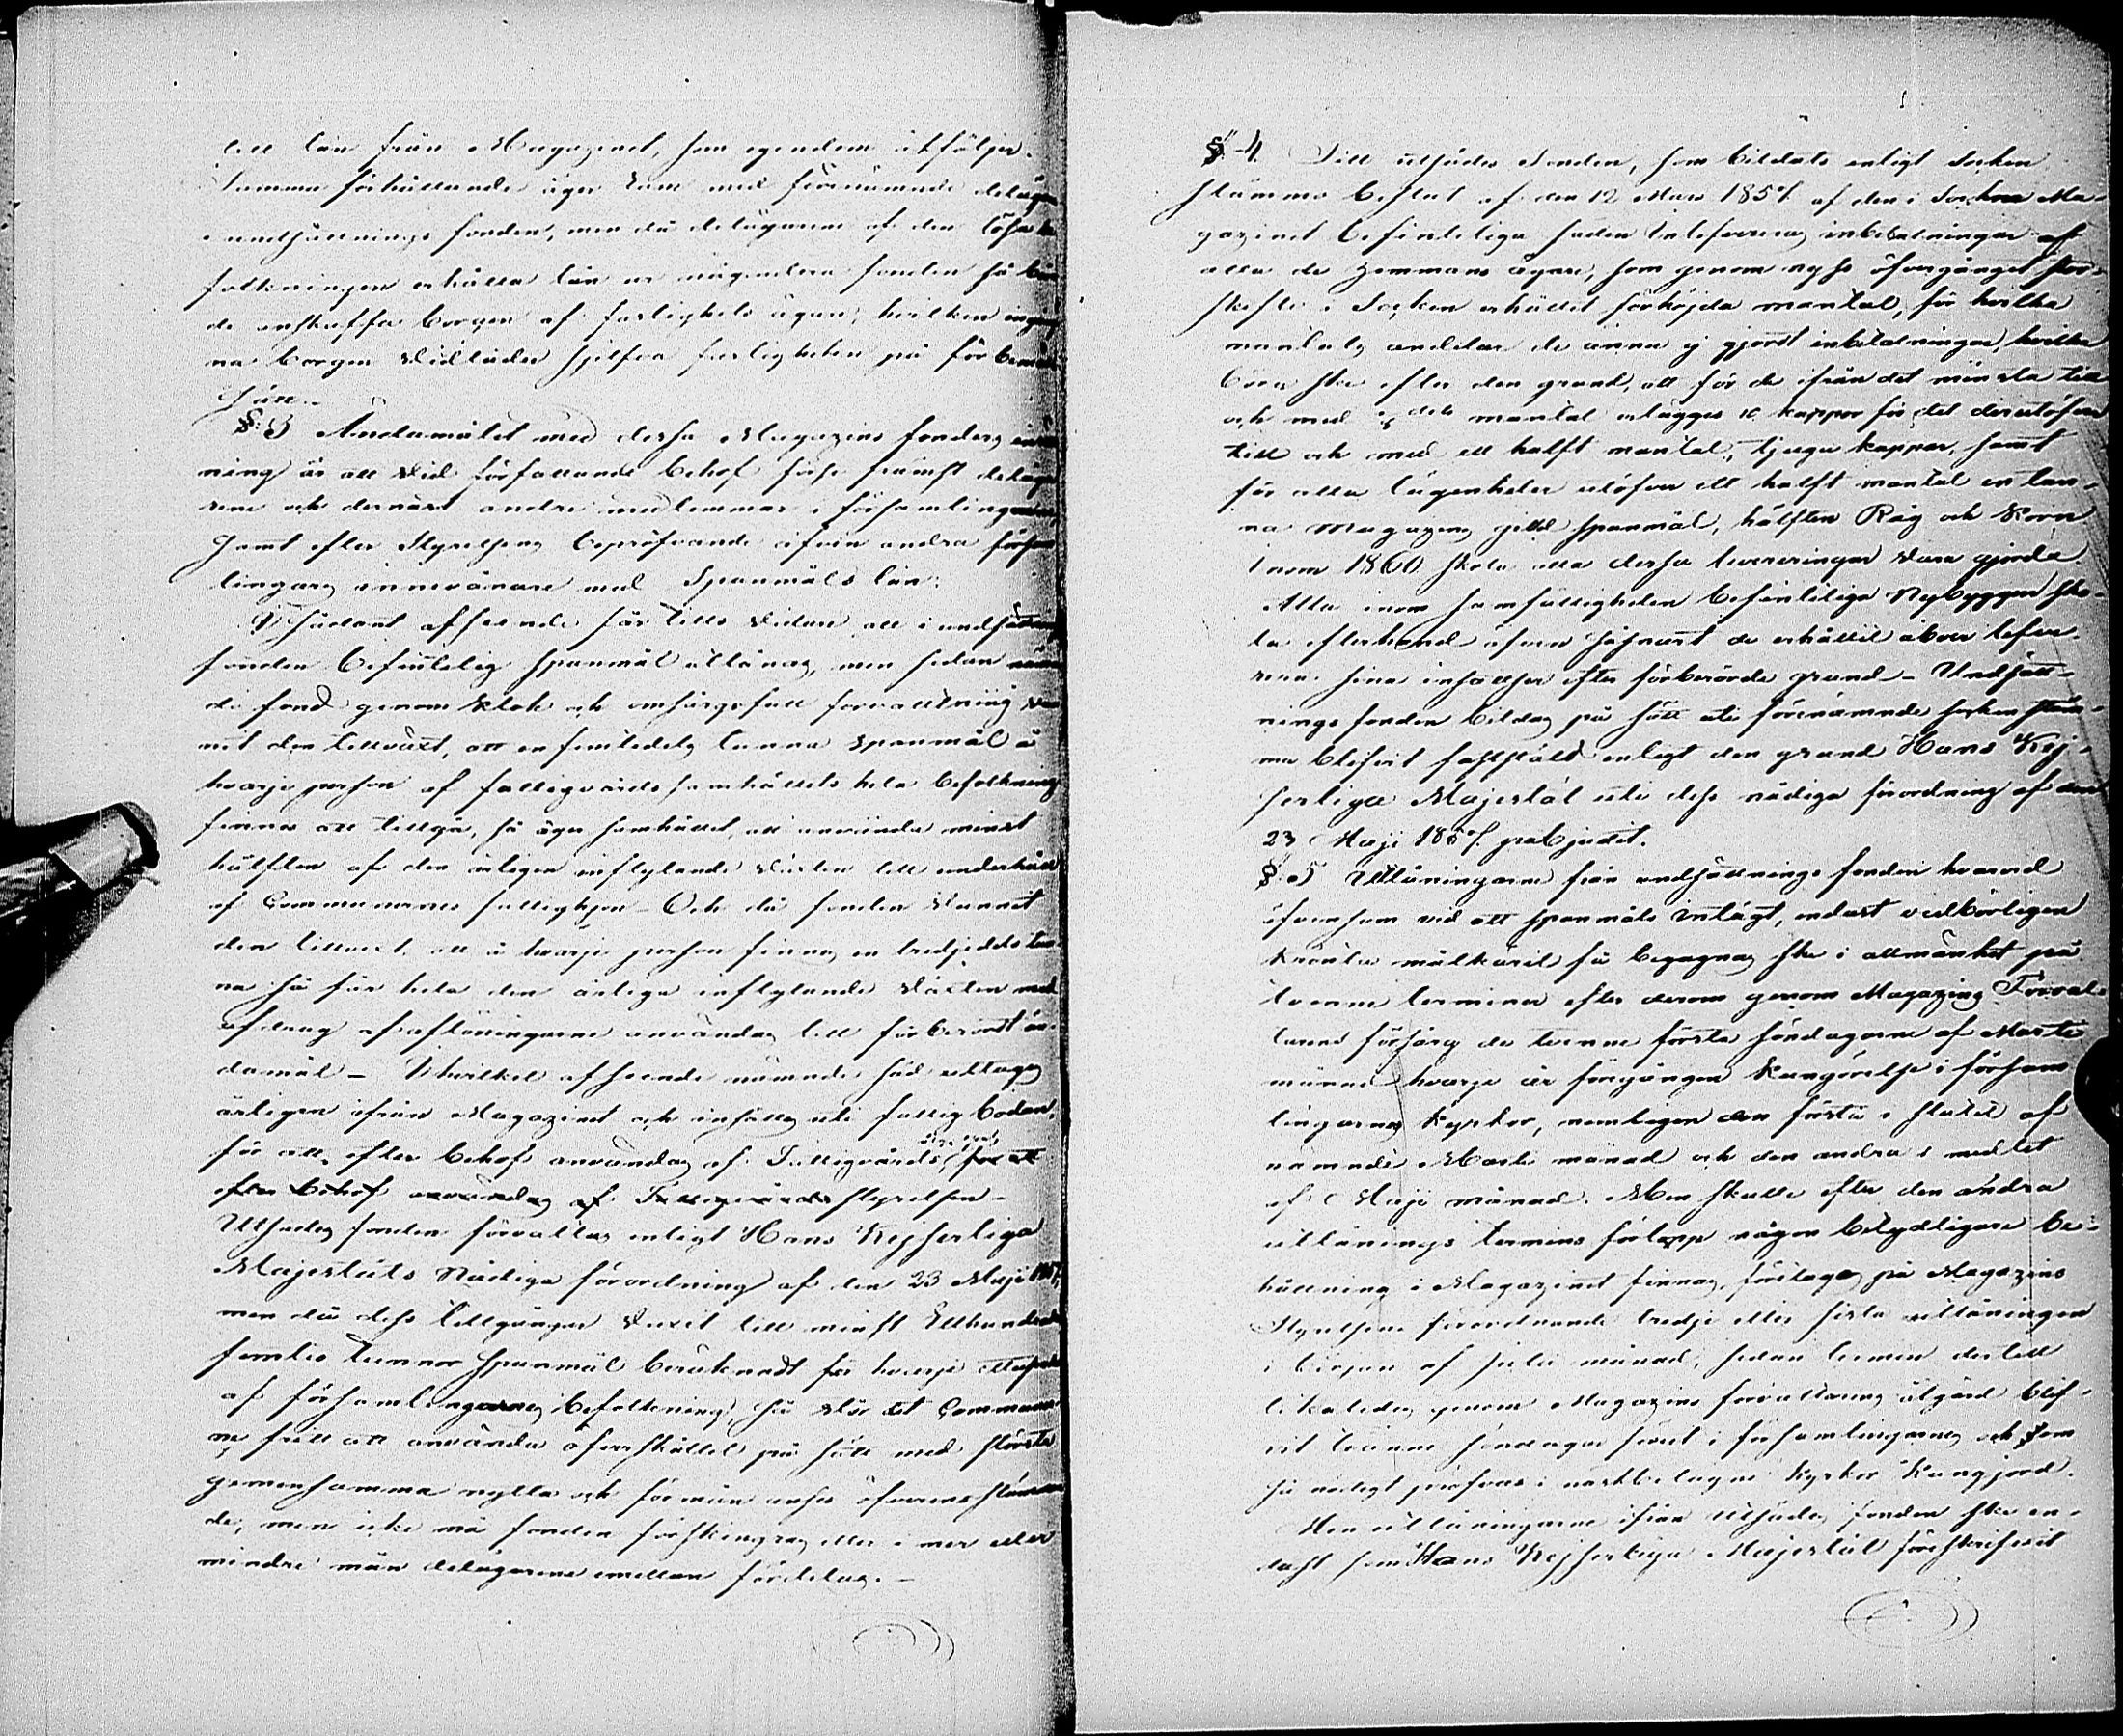 till lån från Magazinet, som egendom åtföljer.
Samma förhållande äger rum med förenämnde delägare
undsättnings fonden, men då delägarene af den lösa be
folkningen erhålla lån ur någondera fonden så bör
de anskaffa borgen af fastighets ägare, hvilken
na borgen vidlåder sjelfva fastigheten på förbemälde
sätt.-
§ 3 Ändamålet med dessa Magazins fonders
ning är att vid förfallande behof förse främst deläga
rene och dernäst andre medlemmar i församlingarne,
samt efter Styrelsens bepröfvande äfven andra försam
lingars innevånare med Spanmåls lån.
I sådant afseende får tills vidare all i undsättnings
fonden befintelig spanmål utlånas, men sedan nämn
de fond genom klok och omsorgsfull förvaltning vun
nit den tillväxt, att en femtedels tunna spanmål å
hvarje person af fattigvårdssamhällets hela befolkning
finnes att tillgå, så äger samhället, att använda minst
hälften af den årligen inflytande växten till underhåll
af Communernes fattighjon - Och då fonden vunnit
den tillvext, att å hvarje person finnes en tredjedels tun
na så får hela den årliga inflytande växten med
afdrag af aflöningarne användas till förberördt än
damål - I hvilket afseende nämnde säd uttages
årligen ifrån Magazinet och insättes uti fattigboden,
för att, efter behof användas af Fattigvårds för att
efter behof användas af Fattigvårds styrelsen -
Utsädes fonden förvaltas enligt Hans Kejserliga
Majestäts Nådiga förordning af den 23 Maji 1857,
men då dess tillgångar vuxit till minst Etthundrade
femtio tunnor spanmål beräknadt för hvarje
af församlingarnes befolkning, så står det Communer
ne fritt att använda öfverskottet på sätt med största
gemensamma nytta och förmån anses öfverensstämman
de, men icke må fonden förskingras eller i mer eller
mindre mån delägarene emellan fördelas. -
§ 4. Till utsädes fonden, som bildats enligt Socken
stämmo beslut af den 12 Mars 1857 af den i Socken Ma-
gazinet befinteliga säden inlefereras inbetalningar af
alla de hemmans ägare, som genom nyss öfvergånget stor-
skifte i Socken erhållit förhöjda mantal, för hvilka
mantals andelar de ännu ej gjort inbetalningar, hvilka
böra ske efter den grund, att för de ifrån det minsta till
och med dels mantal erlägges 10 kappor för det derutöfver
till och med ett halft mantal, tjugu kappor, samt
för alla lägenheter utöfver ett halft mantal en tun-
na Magazins gild spanmål, hälften Råg och Korn
inom 1860 skola alla dessa levereringar vara gjorda
Alla inom samfälligheten befinteliga Nybyggen sko-
la efterhand äfven såsnart de erhållit åboer lefve
rera sina insättser efter förberörde grund - Undsätt-
nings fonden bildas på sätt uti förenämnde socken stäm-
ma blifvit fastställd enligt den grund Hans Kej-
serliga Majestät uti dess nådiga förordning af den
23 Maji 1857 påbjudit.
§ 5 Utlåningarne från undsättnings fonden hvarvid
äfvensom vid allt spanmåls intagt, endast vedbörligen
krönta målkäril få begagnas ske i allmänhet på
tvenne terminer efter derom genom Magazins Förval-
tarens försorg de tvenne första söndagarne af Martii
månad hvarje år föregången kungörelse i försam
lingarnes Kyrkor, nemligen den första i slutet af
nämnde Martii månad och den andra i medlet
af Maji månad. Men skulle efter den andra
utlånings termins förlopp någon betydligare be-
hållning i Magazinet finnas, företages på Magazins
Styrelsens förordnande tredje eller sista utlåningen
i början af Julii månad, sedan termin dertill
likaledes genom Magazins förvaltarens åtgärd blif-
vit tvänne söndagar förut i församlingarnes och som
så nödigt pröfvas i nästbelägne Kyrkor Kungjord.
Men utlåningarne ifrån Utsädes fonden ske en-
dast som Hans Kejserliga Majestät föreskrifvit